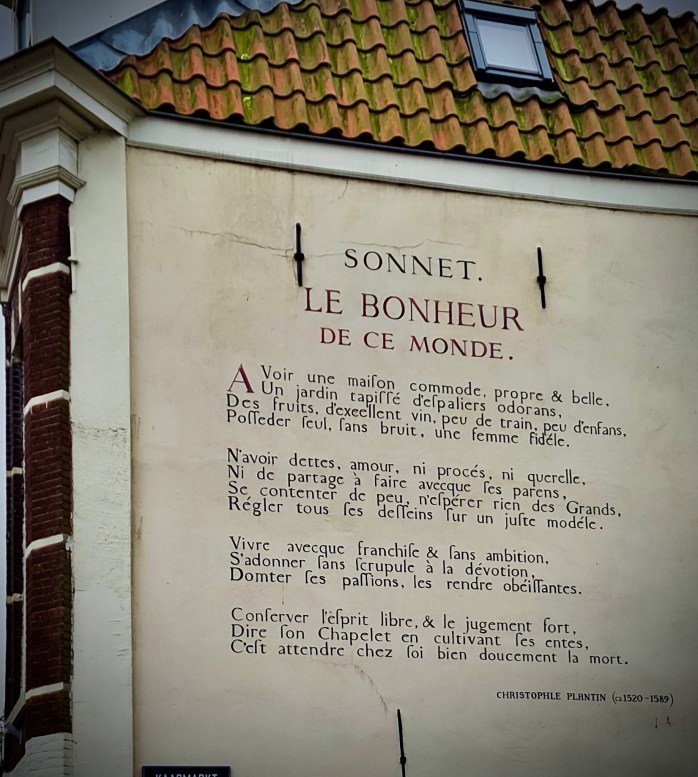 SONNET.
LE BONHEUR
DE CE MONDE.
AVoir une maiſon commode, propre & belle,
Un jardin tapiſſé d'eſpaliers odorans,
Des fruits, d'excellent vin, peu de train, peu d'enfans,
Poſſeder ſeul, ſans bruit, une femme fidéle.
N'avoir dettes, amour, ni procés, ni querelle,
Ni de partage à faire avecque ſes parens,
Se contenter de peu, n'eſpérer rien des Grands,
Régler tous ſes deſſeins ſur un juſte modéle.
Vivre avecque franchiſe & ſans ambition,
S'adonner ſans ſcrupule à la dévotion,
Domter ſes paſſions, les rendre obéiſſantes.
Conſerver l'éſprit libre, & le jugement fort,
Dire ſon Chapelet en cultivant ſes entes,
C'eſt attendre chez ſoi bien doucement la mort.
CHRISTOPHLE PLANTIN (ca 1520-1589)
KAASMARKT